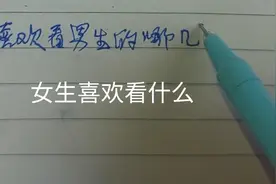 喜欢看男生的哪几
女生喜欢看什么